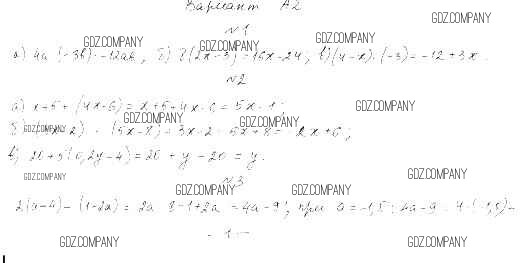 Вариант А2
GDZ.COMPANY
№1
GDZ.COMPANY GDZ.COMPANY GDZ.COMPANY
а) 4a · (-3b) = -12ab, б) 8(2x-3) = 16x-24; в) (4-x) · (-3) = -12+3x.
№2
а) x+5+(4x-6) = x+5+4x-6 = 5x-1;
GDZ.COMPANY
GDZ.COMPANY GDZ.COMPANY
б) (5x-8) = 3x-2-5x+8 = -2x+6;
GDZ.COMPANY
в) 20+5(0,2y-4) = 20+y-20 = y.
GDZ.COMPANY
GDZ.COMPANY
№3
GDZ.COMPANY GDZ.COMPANY
2(a-4)-(1-2a) = 2a 8-1+2a = 4a-9; при a = -1,5: 4a-9
GDZ.COMPANY GDZ.COMPANY